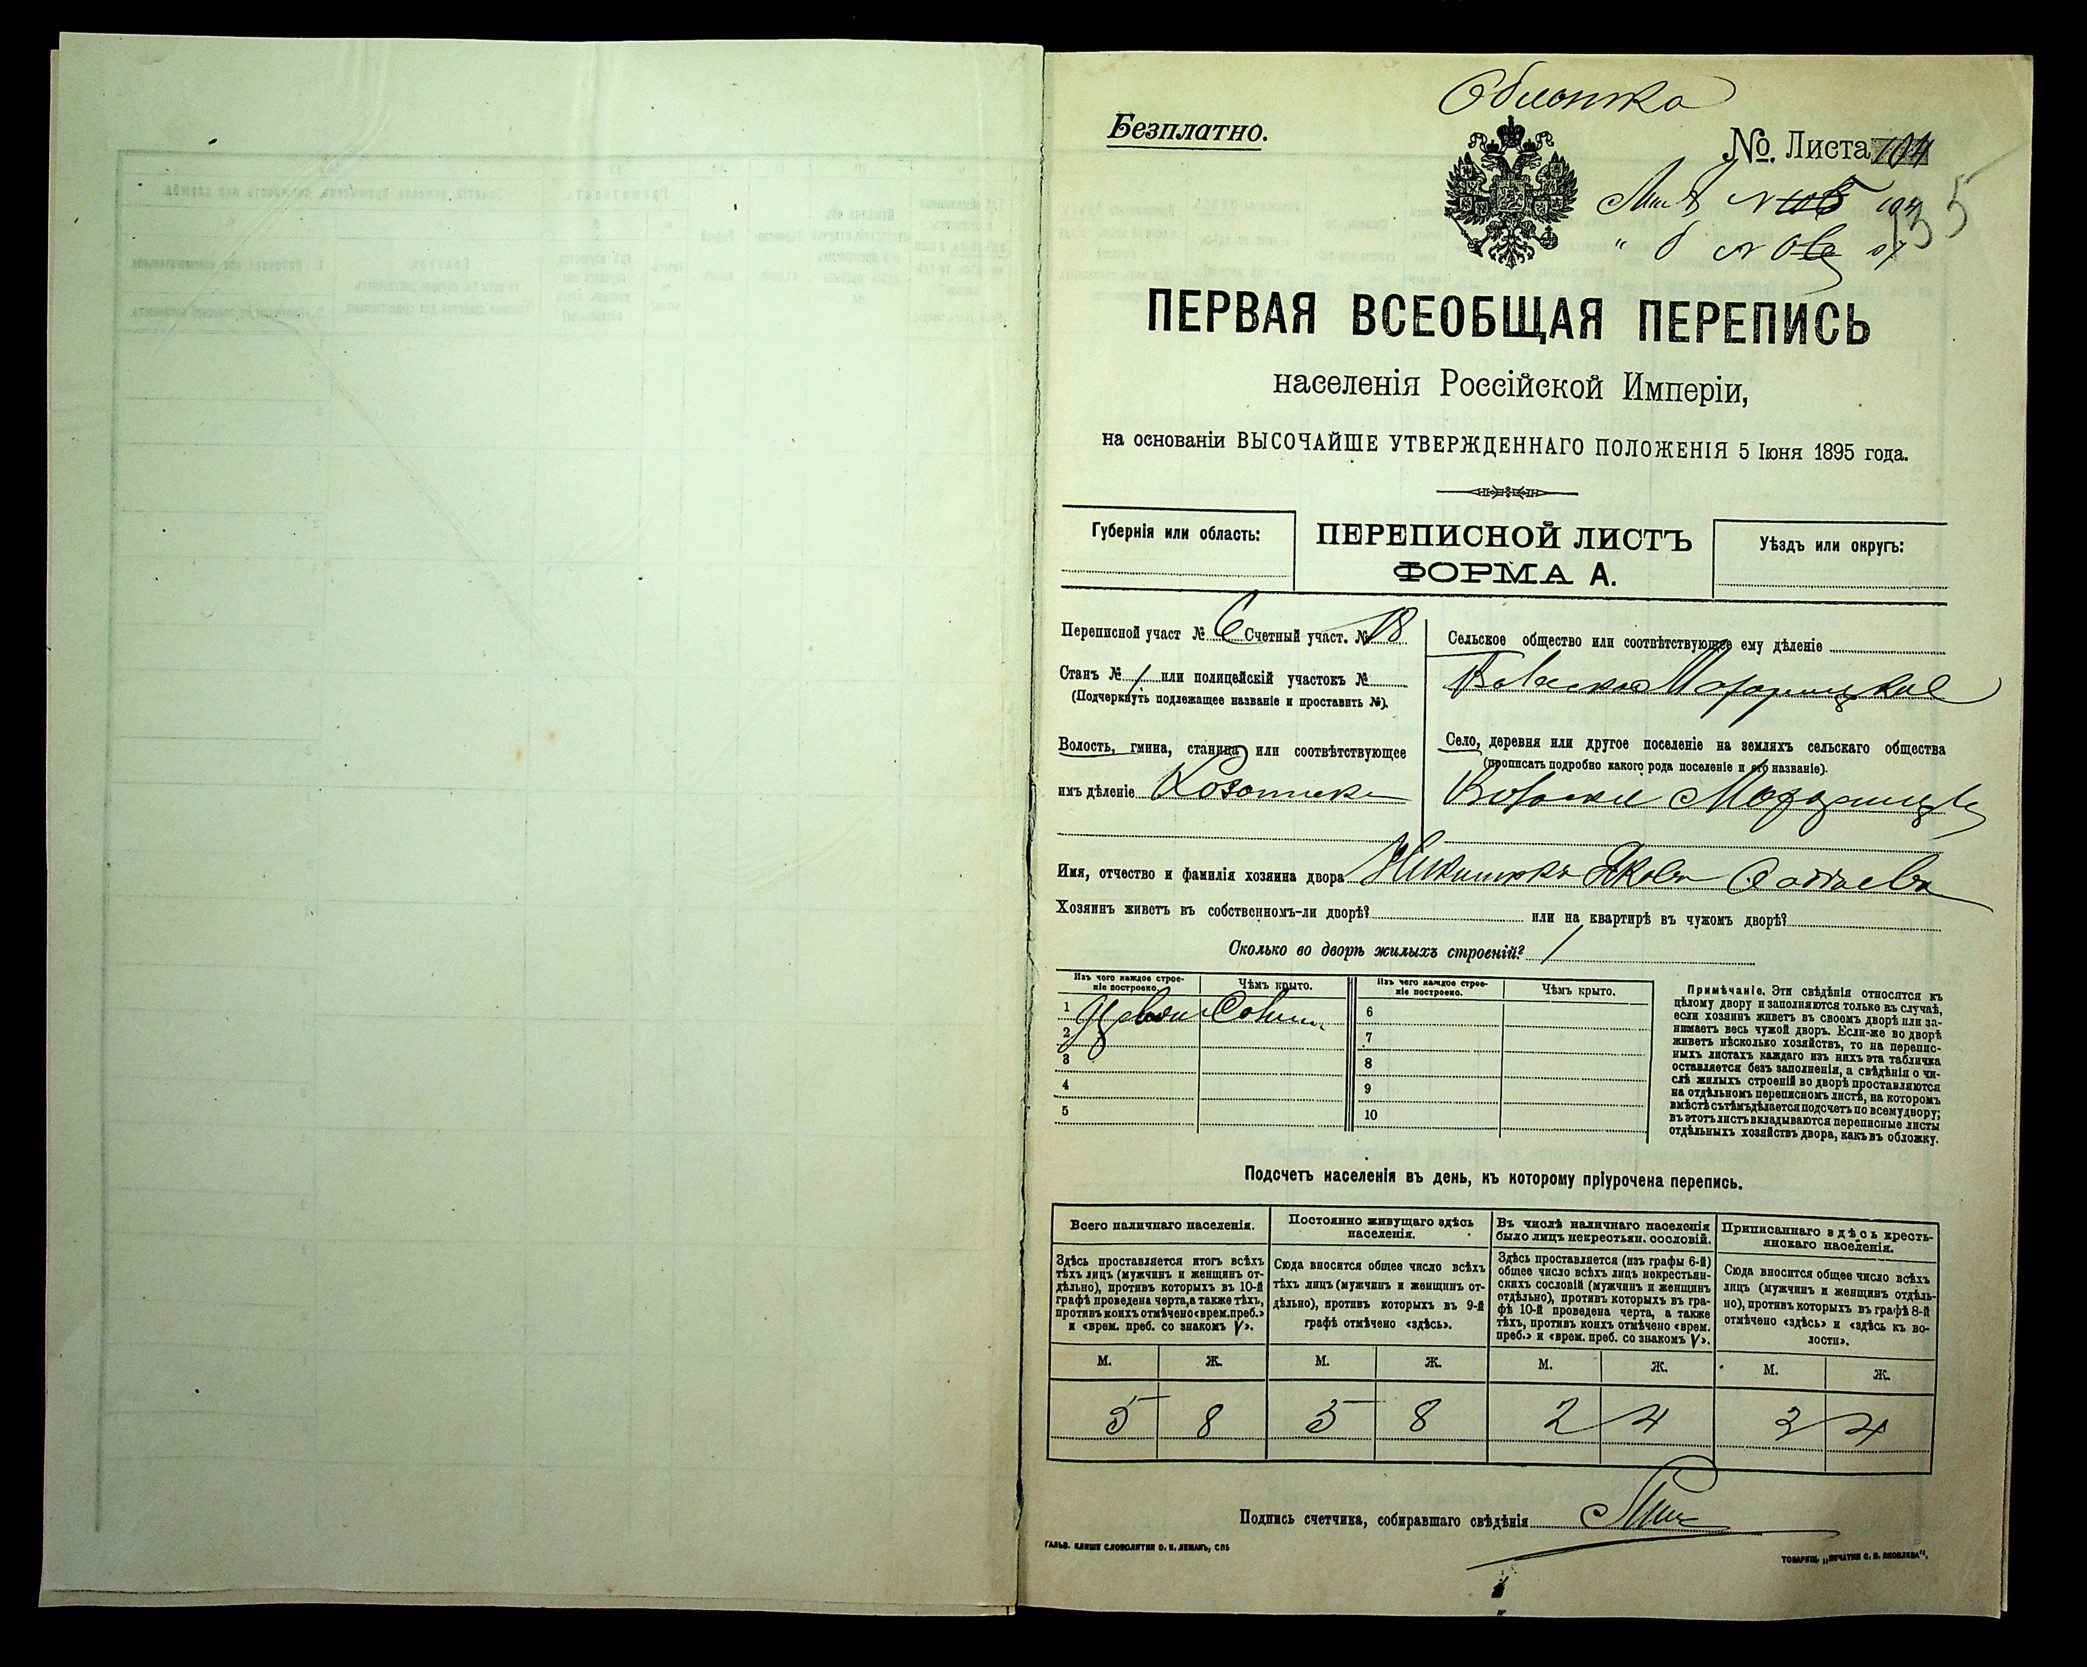 Обложка
Безплатно.
№ Листа 104
135
ПЕРВАЯ ВСЕОБЩАЯ ПЕРЕПИСЬ
населенія Россійской Имперіи,
на основаніи ВЫСОЧАЙШЕ УТВЕРЖДЕННАГО ПОЛОЖЕНІЯ 5 Іюня 1895 года.
Губернія или область:
ПЕРЕПИСНОЙ ЛИСТЪ
ФОРМА А.
Уѣздъ или округъ:
Переписной участ № 6 Счетный участ. № 18
Станъ № 1 или полицейскій участокъ №
(Подчеркнуть подлежащее названіе и проставить №).
Волость, гмина, станица или соотвѣтствующее
имъ дѣленіе
Сельское общество или соотвѣтствующее ему дѣленіе
Село, деревня или другое поселеніе на земляхъ сельскаго общества
(прописать подробно какого рода поселеніе и его названіе).
Имя, отчество и фамилія хозяина двора
Хозяинъ живетъ въ собственномъ-ли дворѣ? или на квартирѣ въ чужомъ дворѣ?
Сколько во дворѣ жилыхъ строеній? 1
Изъ чего каждое строеніе построено.
Чѣмъ крыто.
Изъ чего каждое строеніе построено.
Чѣмъ крыто.
1
2
3
4
5
6
7
8
9
10
Примѣчаніе. Эти свѣдѣнія относятся къ
цѣлому двору и заполняются только въ случаѣ,
если хозяинъ живетъ въ своемъ дворѣ или за-
нимаетъ весь чужой дворъ. Если-же во дворѣ
живетъ нѣсколько хозяйствъ, то на перепис-
ныхъ листахъ каждаго изъ нихъ эта табличка
оставляется безъ заполненія, а свѣдѣнія о чи-
слѣ жилыхъ строеній во дворѣ проставляются
на отдѣльномъ переписномъ листѣ, на которомъ
вмѣстѣ съ тѣмъ дѣлается подсчетъ по всему двору;
въ этотъ листъ вкладываются переписные листы
отдѣльныхъ хозяйствъ двора, какъ въ обложку.
Подсчетъ населенія въ день, къ которому пріурочена перепись.
Всего наличнаго населенія.
Здѣсь проставляется итогъ всѣхъ
тѣхъ лицъ (мужчинъ и женщинъ от-
дѣльно), противъ которыхъ въ 10-й
графѣ проведена черта, а также тѣхъ,
противъ коихъ отмѣчено «врем. преб.»
и «врем. преб. со знакомъ V».
Постоянно живущаго здѣсь
населенія.
Сюда вносится общее число всѣхъ
тѣхъ лицъ (мужчинъ и женщинъ от-
дѣльно), противъ которыхъ въ 9-й
графѣ отмѣчено «здѣсь».
Въ числѣ наличнаго населенія
было лицъ некрестьян. сословій.
Здѣсь проставляется (изъ графы 6-й)
общее число всѣхъ лицъ некрестьян-
скихъ сословій (мужчинъ и женщинъ
отдѣльно), противъ которыхъ въ гра-
фѣ 10-й проведена черта, а также
тѣхъ, противъ коихъ отмѣчено «врем.
преб.» и «врем. преб. со знакомъ V».
Приписаннаго здѣсь кресть-
янскаго населенія.
Сюда вносится общее число всѣхъ
лицъ (мужчинъ и женщинъ отдѣль-
но), противъ которыхъ въ графѣ 8-й
отмѣчено «здѣсь» и «здѣсь къ во-
лости».
М. Ж. М. Ж. М. Ж. М. Ж.
5 8 5 8 2 4 3 4
Подпись счетчика, собиравшаго свѣдѣнія
ГАЛЬВ. КЛИШЕ СЛОВОЛИТНИ О. И. ЛЕМАНЪ, СПБ
ТОВАРИЩ. „ПЕЧАТНЯ С. П. ЯКОВЛЕВА".